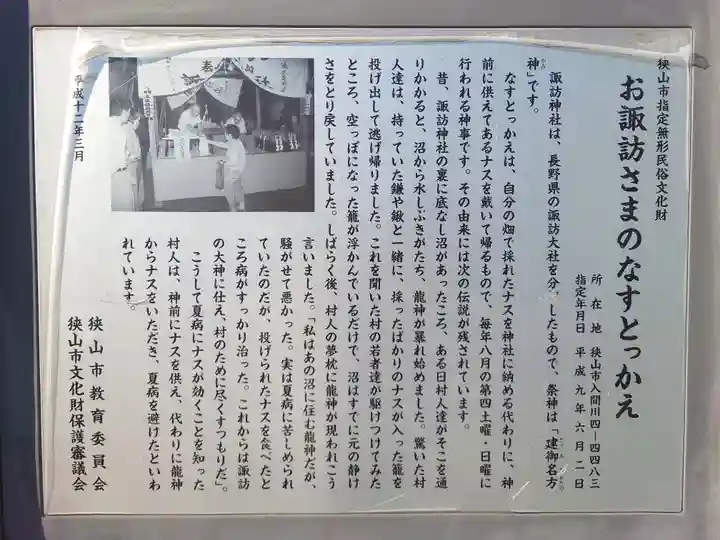 狭山市指定無形民俗文化財
お諏訪さまのなすとっかえ
所在地 狭山市入間川四―四四八三
指定年月日 平成九年六月二日
諏訪神社は、長野県の諏訪大社を分したもので、祭神は「建御名方
神」です。
なすとっかえは、自分の畑で採れたナスを神社に納める代わりに、神
前に供えてあるナスを戴いて帰るもので、毎年八月の第四土曜・日曜に
行われる神事です。その由来には次の伝説が残されています。
昔、諏訪神社の裏に底なし沼があったころ、ある日村人達がそこを通
りかかると、沼から水しぶきがたち、龍神が暴れ始めました。驚いた村
人達は、持っていた鎌や鍬と一緒に、採ったばかりのナスが入った籠を
投げ出して逃げ帰りました。これを聞いた村の若者達が駆けつけてみた
ところ、空っぽになった籠が浮かんでいるだけで、沼はすでに元の静け
さをとり戻していました。しばらく後、村人の夢枕に龍神が現われこう
言いました。「私はあの沼に住む龍神だが、
騒がせて悪かった。実は夏病に苦しめられ
ていたのだが、投げられたナスを食べたと
ころ病がすっかり治った。これからは諏訪
の大神に仕え、村のために尽くすつもりだ」。
こうして夏病にナスが効くことを知った
村人は、神前にナスを供え、代わりに龍神
からナスをいただき、夏病を避けたといわ
れています。
平成十二年三月
狭山市教育委員会
狭山市文化財保護審議会